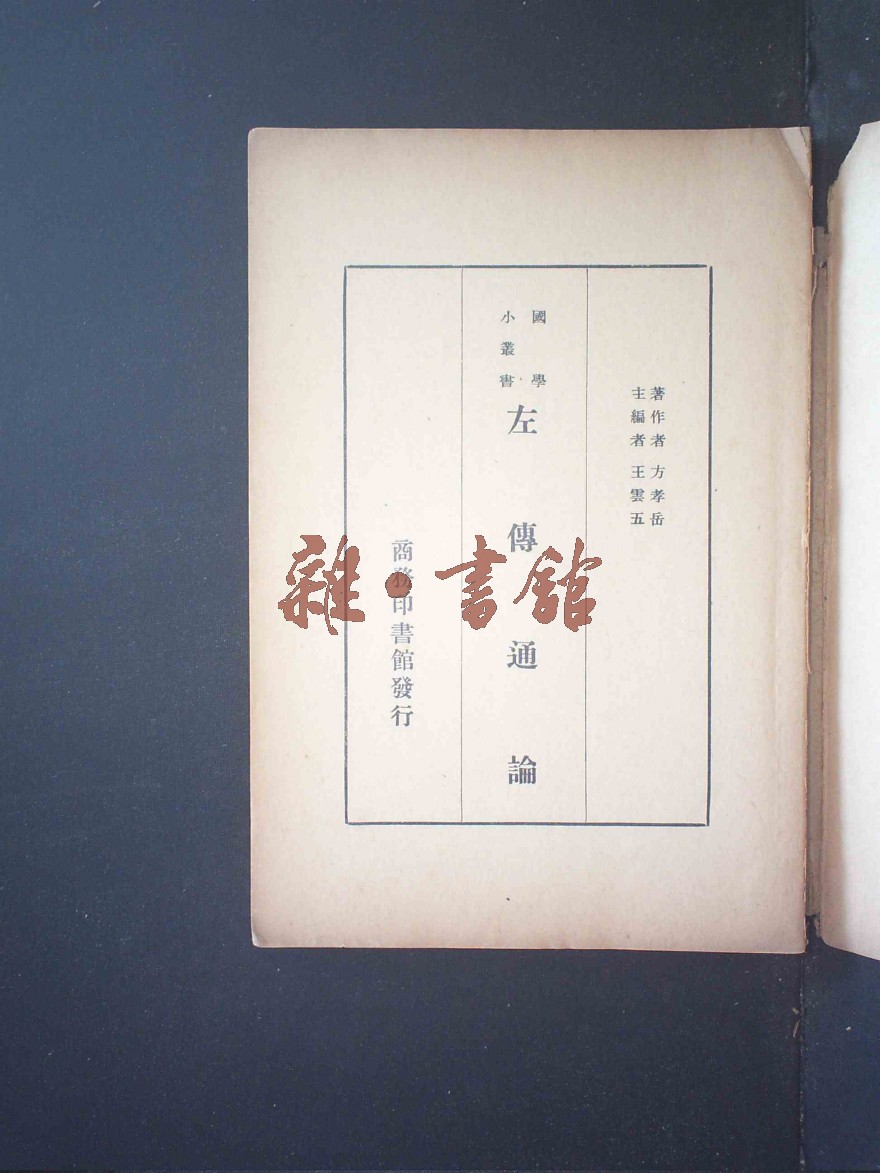 著作者 方孝岳
主編者 王雲五
國學
小叢書
左傳通論
商務印書館發行
雜·書館